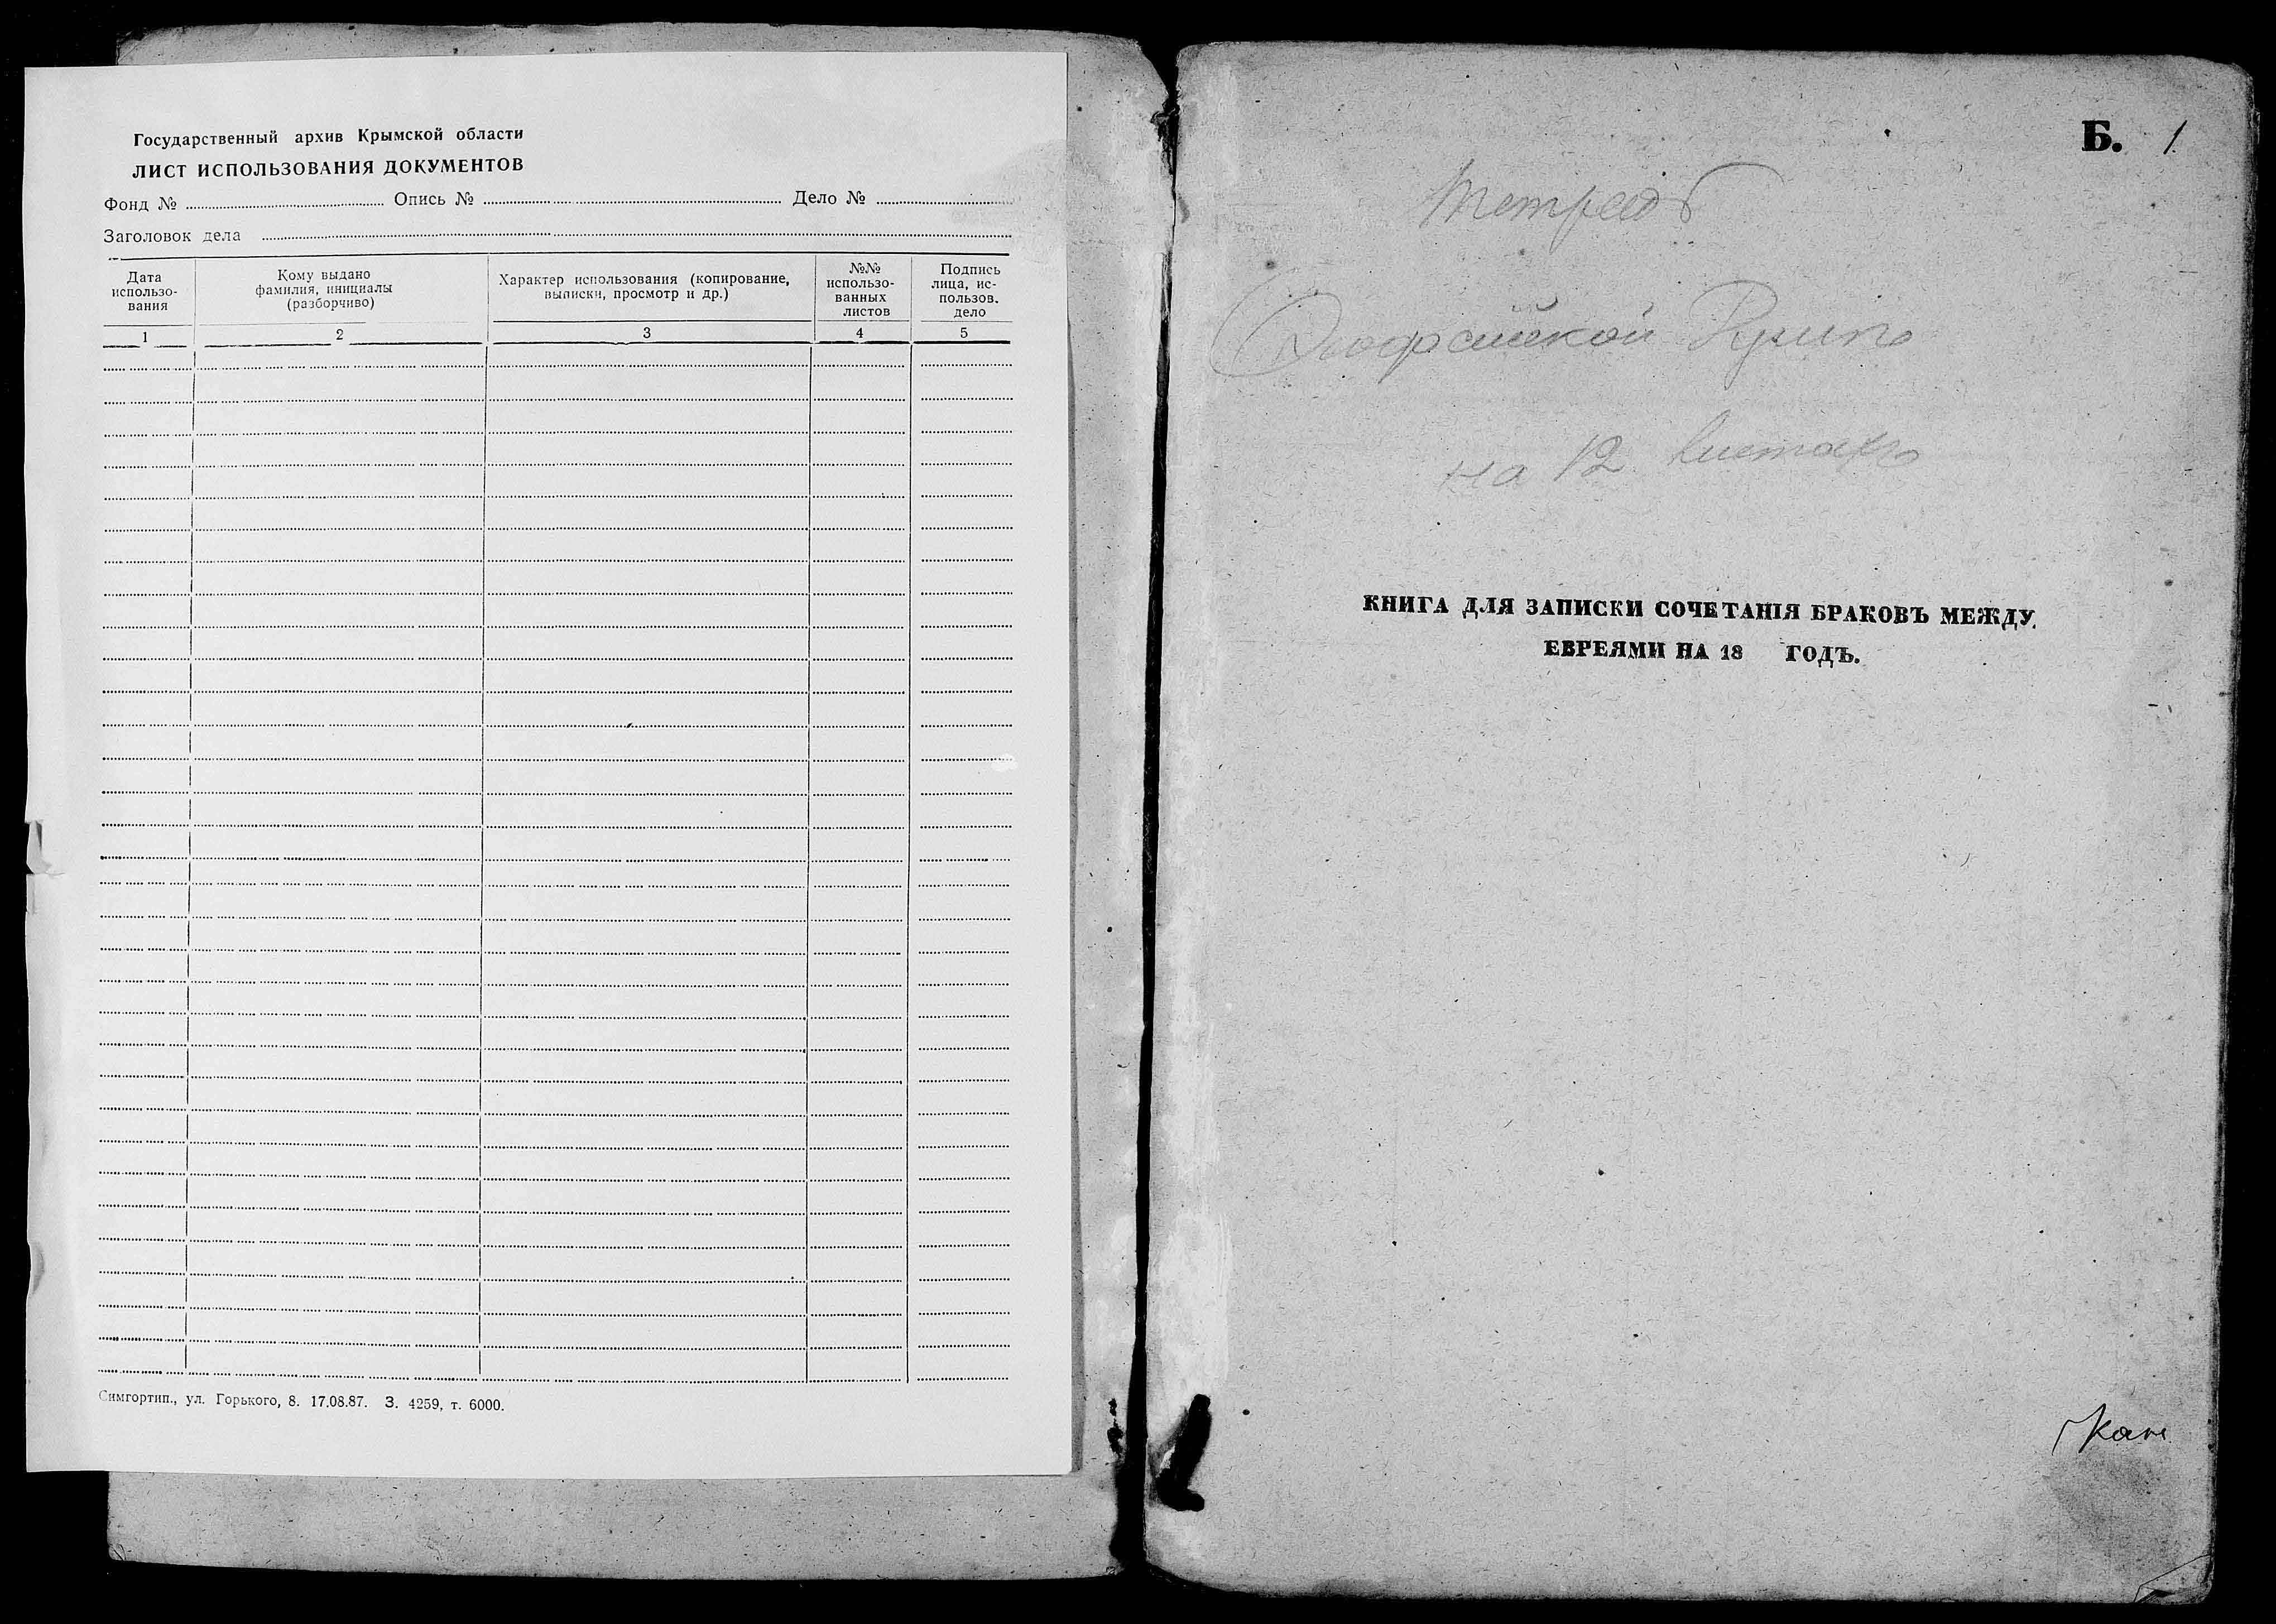 Государственный архив Крымской области
ЛИСТ ИСПОЛЬЗОВАНИЯ ДОКУМЕНТОВ
Фонд № Опись № Дело №
Заголовок дела
Дата использо-вания
Кому выдано фамилия, инициалы (разборчиво)
Характер использования (копирование, выписки, просмотр и др.)
№№ использо-ванных листов
Подпись лица, ис-пользов. дело
1 2 3 4 5
Симгортип., ул. Горького, 8. 17.08.87. З. 4259, т. 6000.
Б. 1
Тетрадь
на 12 листахъ
КНИГА ДЛЯ ЗАПИСКИ СОЧЕТАНІЯ БРАКОВЪ МЕЖДУ
ЕВРЕЯМИ НА 18 ГОДЪ.